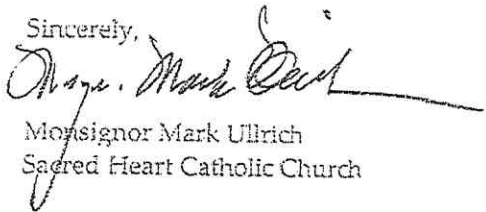 Sincerely,
Msgr. Mark Ullrich
Monsignor Mark Ullrich
Sacred Heart Catholic Church